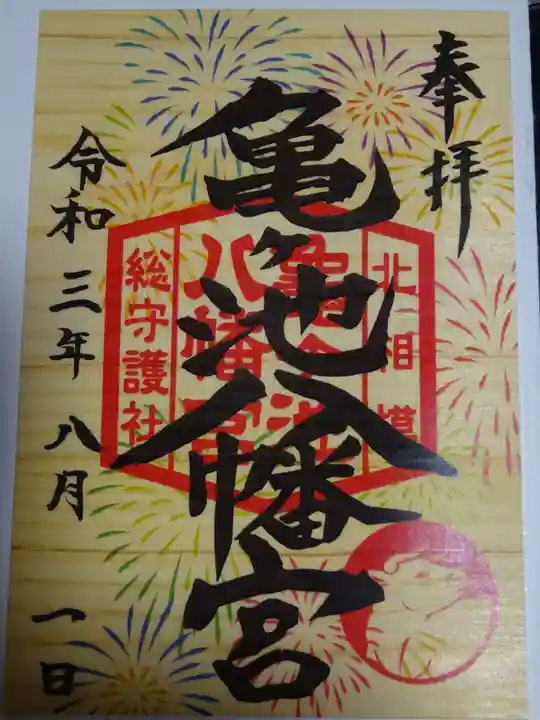 奉拝
北相模
亀ヶ池
八幡宮
総守護社
亀ヶ池八幡宮
令和三年八月一日